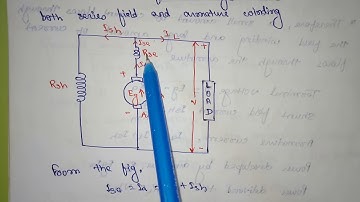 both series field and armature winding
Ish
Ise
Rse
Rsh
Eg
+
-
V
+
-
LOAD
From the fig.
Ise = Ia = + Ish